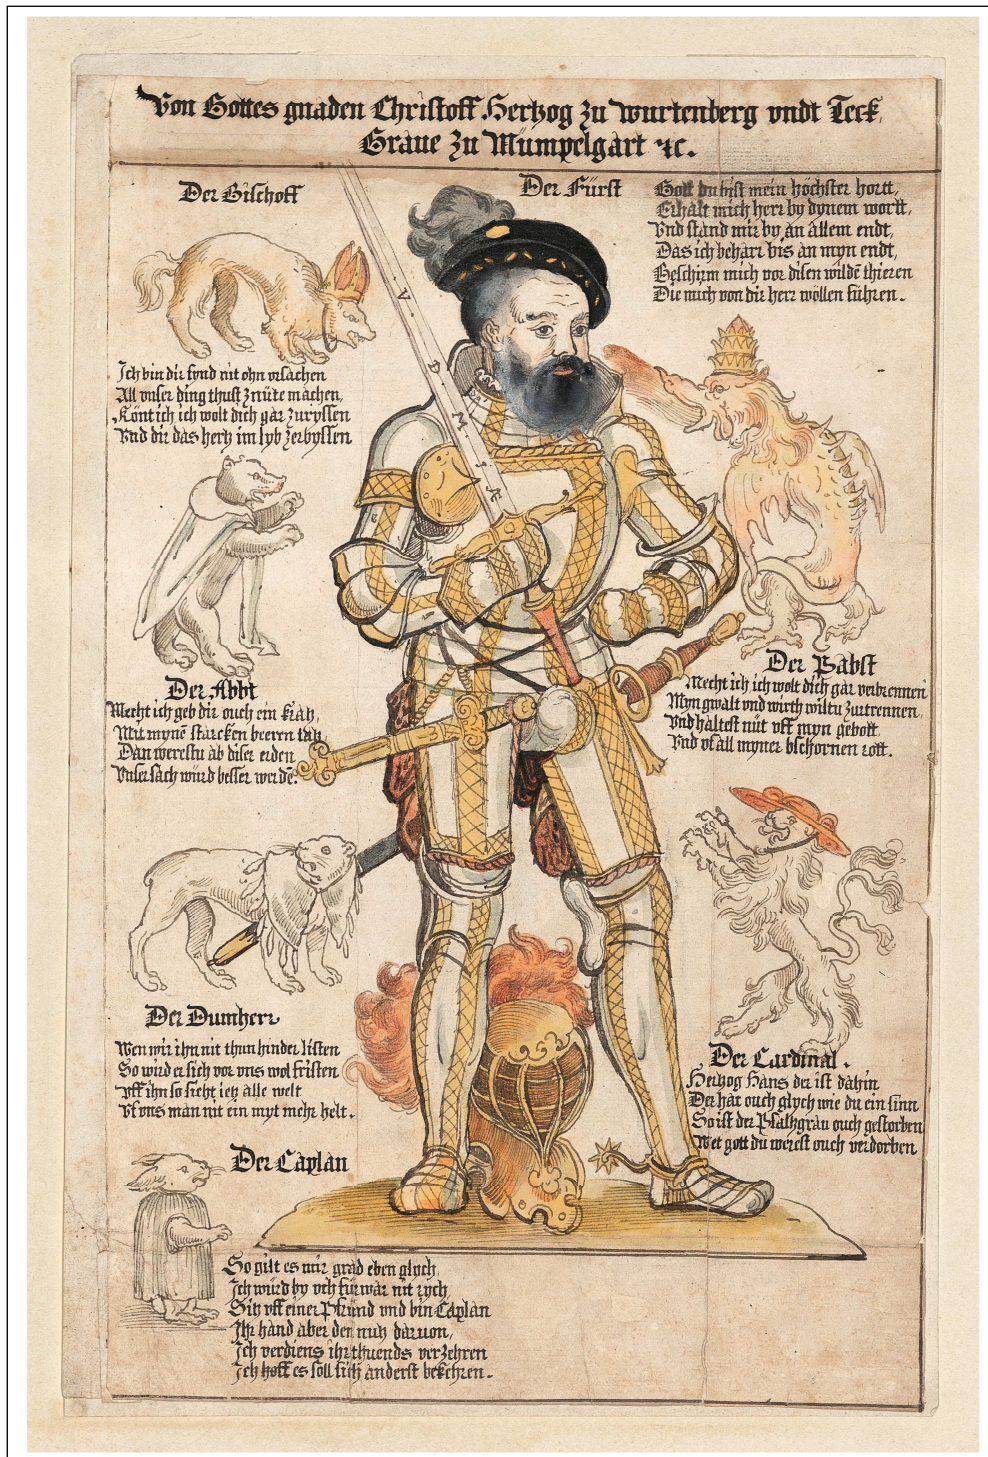 Von Gottes gnaden Christoff Hertzog zu wurtenberg vndt Teck,
Graue zu Mümpelgart ꝛc.
Der Bischoff
Ich bin dir fynd nit ohn vrsachen
All vnser ding thust znüte machen,
Könt ich ich wolt dich gar zuryssen
Vnd dir das hertz im lyb zerbyssen
Der Fürst
Gott du bist mein höchster hortt,
Erhalt mich herr by dynem wortt,
Vnd stand mir by an allem endt,
Das ich beharr bis an myn endt,
Beschirm mich vor disen wildē thieren
Die mich von dir herr wöllen führen.
V D M I Æ
Der Abbt
Mecht ich geb dir ouch ein kratz,
Mit mynē starcken beeren
Dan werestu ab diser erden
Vnser sach würd besser werdē.
Der Pabst
Mecht ich ich wolt dich gar verbrennen
Myn gwalt vnd wirth wiltu zutrennen,
Vnd haltest nüt vff myn gebott
Vnd vf all myner bschornen rott.
Der Dumherr
Wen wir ihn nit thun hinderlisten
So wird er sich vor vns wol fristen
Vff ihn so sicht ietz alle welt
Vf vns man nit ein myt mehr helt.
Der Cardinal.
Hertzog Hans der ist dahin
Der hat ouch glych wie du ein sinn
So ist der Pfaltzgrau ouch gestorben
Wet gott du werest ouch verdorben
Der Caplan
So gilt es mir grad eben glych
Ich würd by vch fürwar nit rych
Sitz vff einer Pfründ vnd bin Caplan
Ihr hand aber den nutz daruon,
Ich verdiens ihr thuends verzehren
Ich hoff es soll sich anderst bekehren.